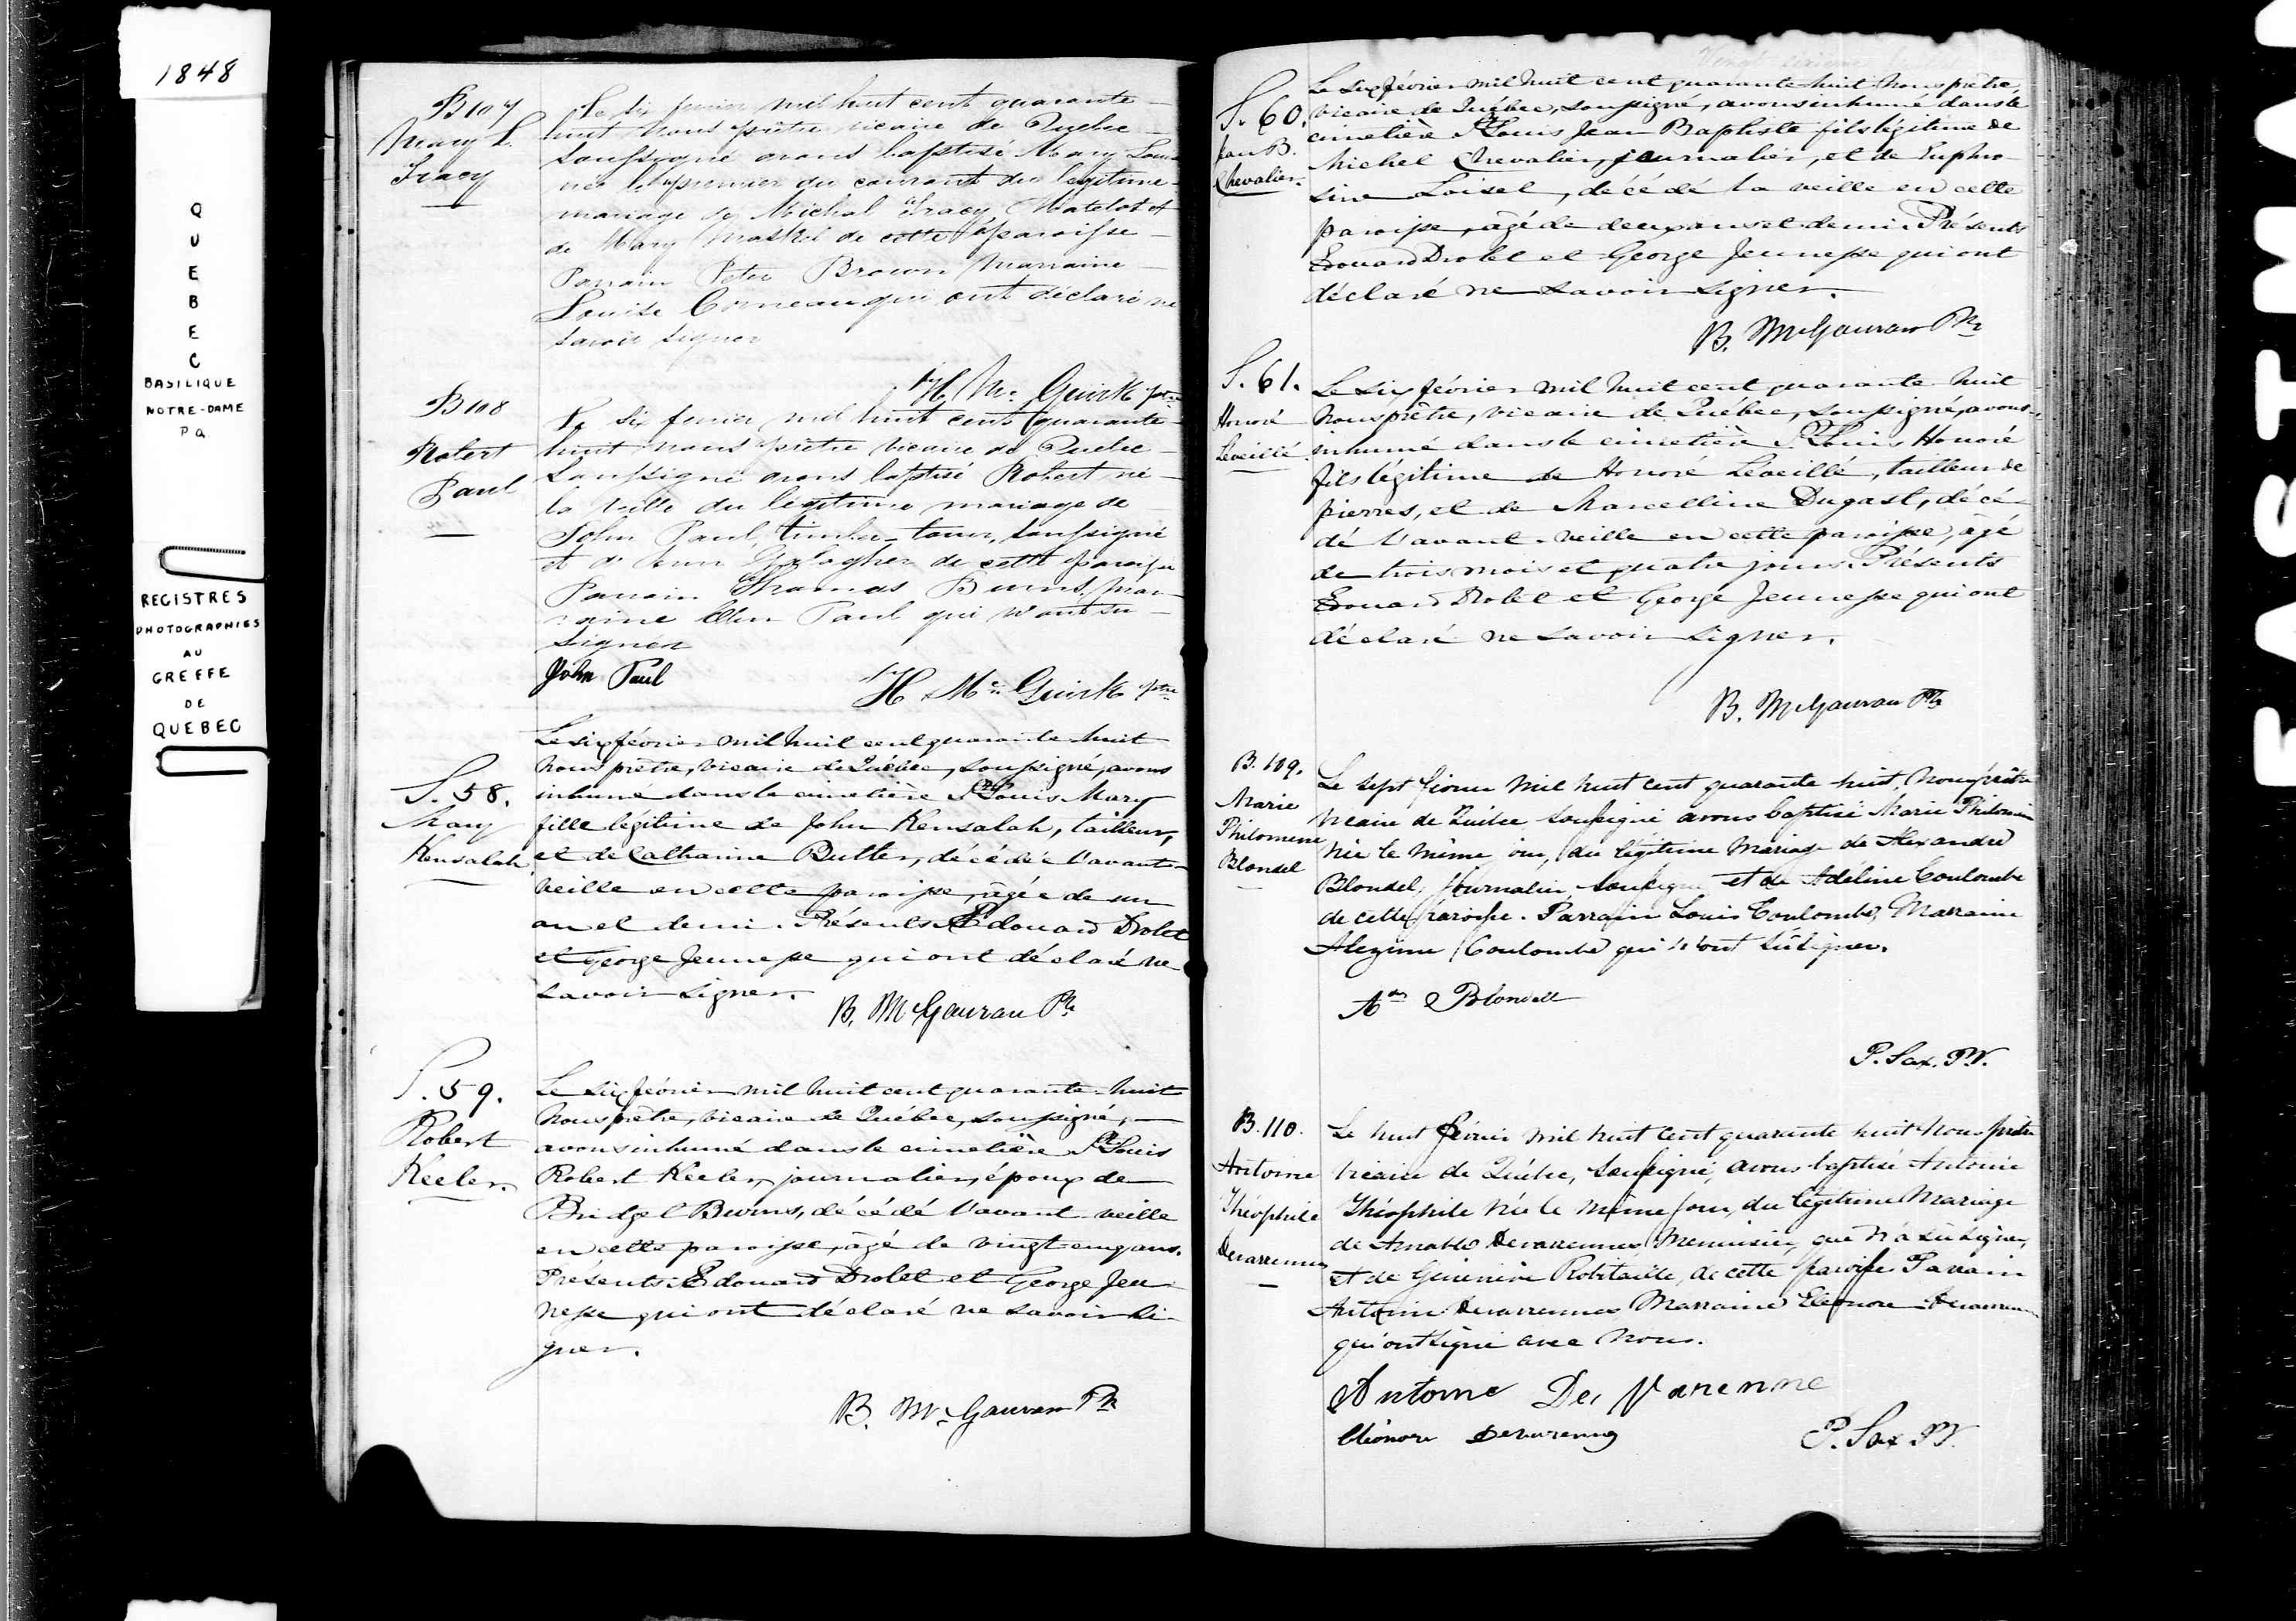 1848
QUEBEC
BASILIQUE
NOTRE-DAME
P Q
REGISTRES
PHOTOGRAPHIES
AU
GREFFE
DE
QUEBEC
B 107
Mary L.
Tracy
Le six fevrier mil huit cent quarante
huit nous prêtre vicaire de Quebec
soussigné avons baptisé Mary Louise
née le premier du courant du legitime
mariage de Michal Tracy Matelot et
de Mary de cette paroisse
Parrain Peter Brown Marraine
Louise Corneau qui ont déclaré ne
savoir signer
H Mc Guirk ptre
B 108
Robert
Paul
Le six fevrier mil huit cent quarante
huit nous prêtre vicaire de Quebec
soussigné avons baptisé Robert né
la veille du légitime mariage de
John Paul, soussigné
et d'Ann Galagher de cette paroisse
Parrain Thomas Burns, mar-
raine Ellen Paul qui n'ont su
signer
John Paul
H Mc Guirk ptre
S. 58.
Mary
Kensalah
Le six février mil huit cent quarante-huit
nous prêtre, vicaire de Québec, soussigné, avons
inhumé dans le cimetière St Louis Mary
fille légitime de John Kensalah, tailleur,
et de Catharine Butler, décédée l'avant-
veille en cette paroisse, âgée de un
an et demi. Présents Edouard Drolet
et George Jeunesse qui ont déclaré ne
savoir signer.
B. McGauran Ptre
S. 59.
Robert
Keeler.
Le six février mil huit cent quarante-huit
nous prêtre, vicaire de Québec, soussigné,
avons inhumé dans le cimetière St Louis
Robert Keeler, journalier, époux de
Bridget Burns, décédé l'avant-veille
en cette paroisse, âgé de vingt cinq ans.
Présents Edouard Drolet et George Jeu-
nesse qui ont déclaré ne savoir si-
gner.
B. McGauran Ptre
S. 60.
Jean B.
Chevalier.
Le six février mil huit cent quarante-huit nous prêtre,
vicaire de Québec, soussigné, avons inhumé dans le
cimetière St Louis Jean Baptiste fils légitime de
Michel Chevalier, journalier, et de Euphro-
sine Loisel, décédé la veille en cette
paroisse, âgé de deux ans et demi. Présents
Edouard Drolet et George Jeunesse qui ont
déclaré ne savoir signer.
B. McGauran Ptre
S. 61.
Honoré
Léveillé.
Le six février mil huit cent quarante-huit
nous prêtre, vicaire de Québec, soussigné, avons
inhumé dans le cimetière St Louis Honoré
fils légitime de Honoré Léveillé, tailleur de
pierres, et de Marcelline Dugast, décé-
dé l'avant-veille en cette paroisse, âgé
de trois mois et quatre jours. Présents
Edouard Drolet et George Jeunesse qui ont
déclaré ne savoir signer.
B. McGauran Ptre
B. 109.
Marie
Philomene
Blondel
Le sept fevrier mil huit cent quarante huit, nous prêtre
vicaire de Québec soussigné avons baptisé Marie Philomène
née le même jour, du légitime Mariage de Alexandre
Blondel, journalier soussigné et de Adéline Coulombe
de cette paroisse. Parrain Louis Coulombe, Marraine
Coulombe qui n'ont sû signer.
Blondell
P. Sax. P.V.
B. 110.
Antoine
Théophile
Devarennes
Le huit février mil huit cent quarante huit nous prêtre
vicaire de Québec, soussigné, avons baptisé Antoine
Théophile née le même jour, du légitime Mariage
de Amable Devarennes Menuisier, qui n'a sû signer,
et de Genevieve Robitaille, de cette paroisse Parrain
Antoine Devarennes Marraine Eléonore Devarennes
qui ont signé avec nous.
Antoine De Varenne
Eléonore Devarennes
P. Sax P.V.